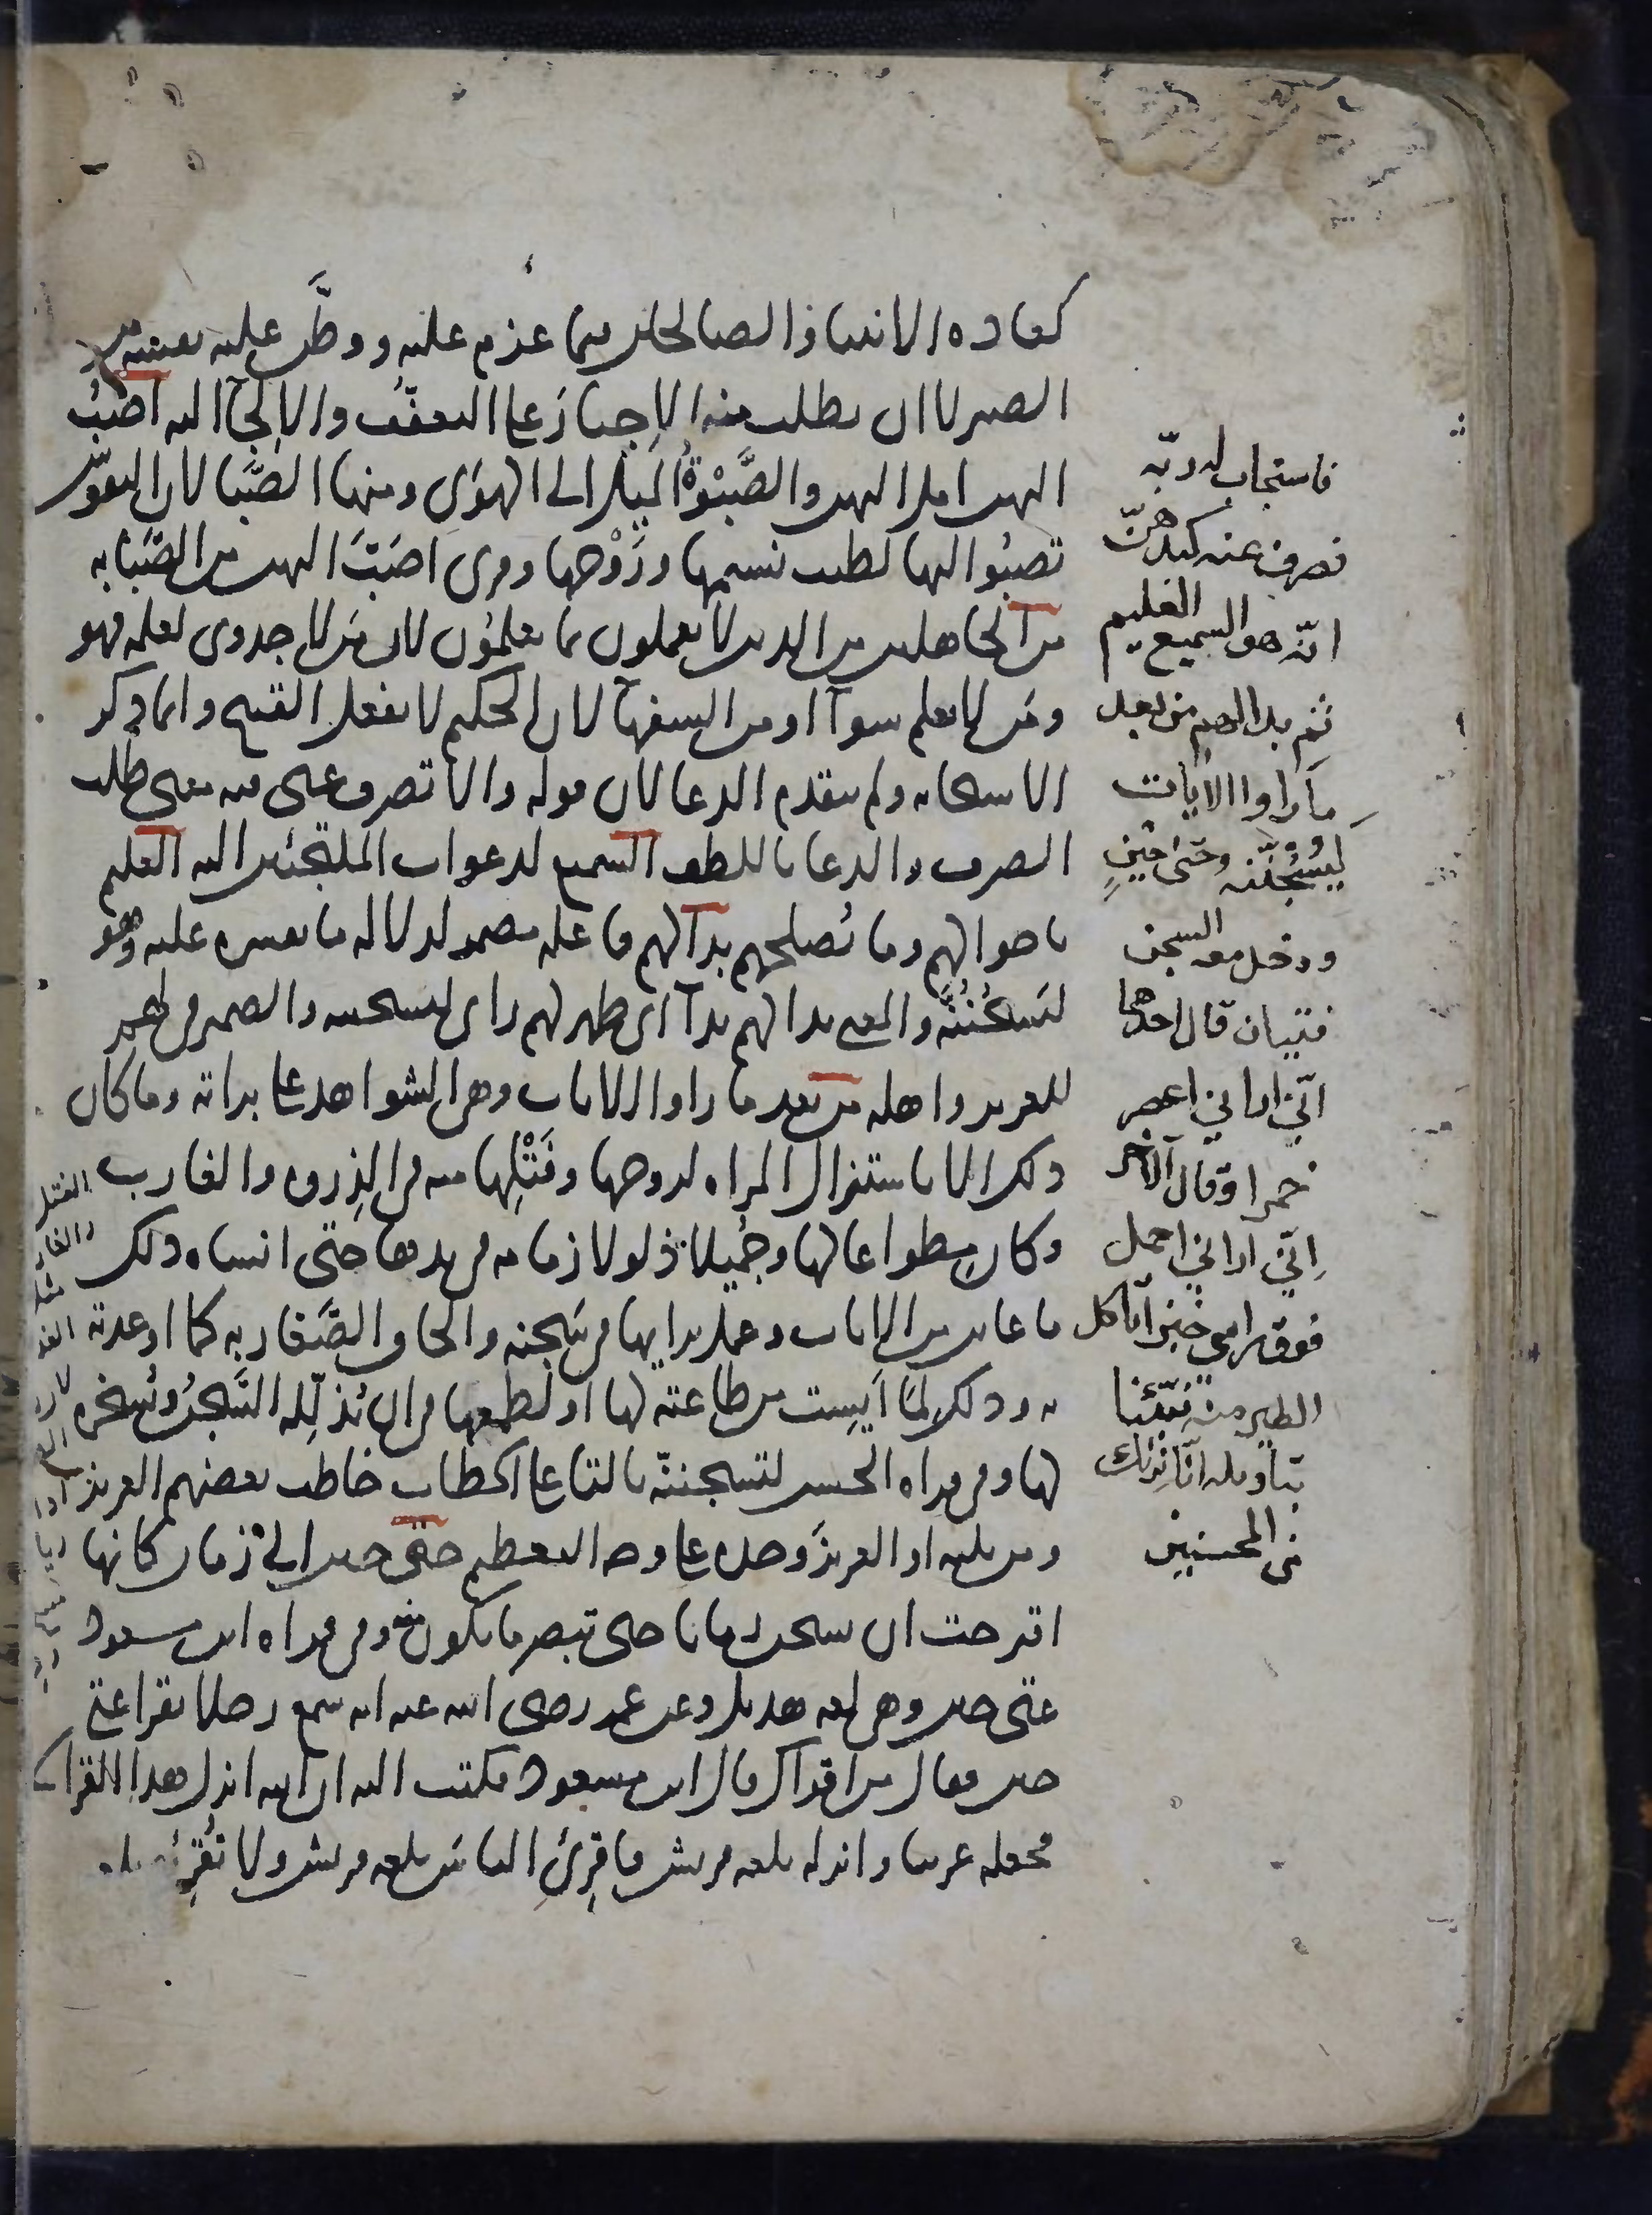 كعادة الانبيا والصالحين فيما عزم عليه ووطَّن عليه نفسه من
الصبر لا ان يطلب منه الاِجبار على التعفّف والالجآ اليه اَصْبُ
اليهن امل اليهن والصَّبْوَةُ الميل الى الهوَى ومنها الصَّبا لان النفوس
تصبُوا اليها لطيب نسيمها ورَوْحها وقرى اَصَبّ اليهن من الصَّبَابه
من الجاهلين من الذين لا يعملون بما يعلمون لان مَن لا جدوى لعلمه فهو
ومَن لا يعلم سوآ او من السفهآ لان الحكيم لا يفعل القبيح وانما ذكر
الاستجابه ولم يتقدم الدعا لان قوله والا تصرف عنى فيه معنى طلب
الصرف والدعا باللطف السميع لدعوات الملتجئين اليه العليم
باحوالهم وما يُصلحهم بدا لهم فاعله مضمر لدلاله ما يفسره عليه وهو
ليَسجُنُنَّه والمعنى بدا لهم بدآ اى ظهر لهم راى ليسجننه والضمير فى لهم
للعزيز واهله من بعد ما راوا الايات وهى الشواهد على براته وما كان
ذلك الا باستنزال المراه لزوجها وفَتْلِها منه فى الذِروه والغارب
وكان مِطواعا لها وجُمَيلا ذلولا زمامه فى يدها حتى انساه ذلك
ما عاين من الايات وعمل برايها فى سَجنه والحاق الصَّغار به كما اوعدته
به وذلك لمّا اَيِست من طاعته لها او لطمعها فى ان يُذلّله السَّجنُ ويُسَخره
لها وفى قراه الحسن لتسجننّه بالتا على الخطاب خاطب بعضهم العزيز
ومن يليه او العزيز وحده على وجه التعظيم حتى حين الى زمان كانها
اقترحت ان يسجن زمانا حتى تبصر ما يكون منه وفى قراه ابن مسعود
عتى حين وهى لغه هذيل وعن عمر رضى الله عنه انه سمع رجلا يقرا عتى
حين فقال من اقراك قال ابن مسعود فكتب اليه ان الله انزل هذا القران
فجعله عربيا وانزله بلغه قريش فاقرِئِ الناسَ بلغه قريش ولا تُقرِئهم
فاستجاب له ربّه
فصرف عنه كيدهنّ
انّه هو السميع العليم
ثم بدا لهم من بعد
ما راوا الايات
ليسجُنُنّه حتى حينٍ
ودخل معه السجن
فتيان قال احدهما
انّي اراني اعصر
خمرا وقال الآخر
اِنّي اراني احمل
فوق راسي خبزا تاكل
الطير منه نبّئنا
بتاويله انّا نراك
من المحسنين